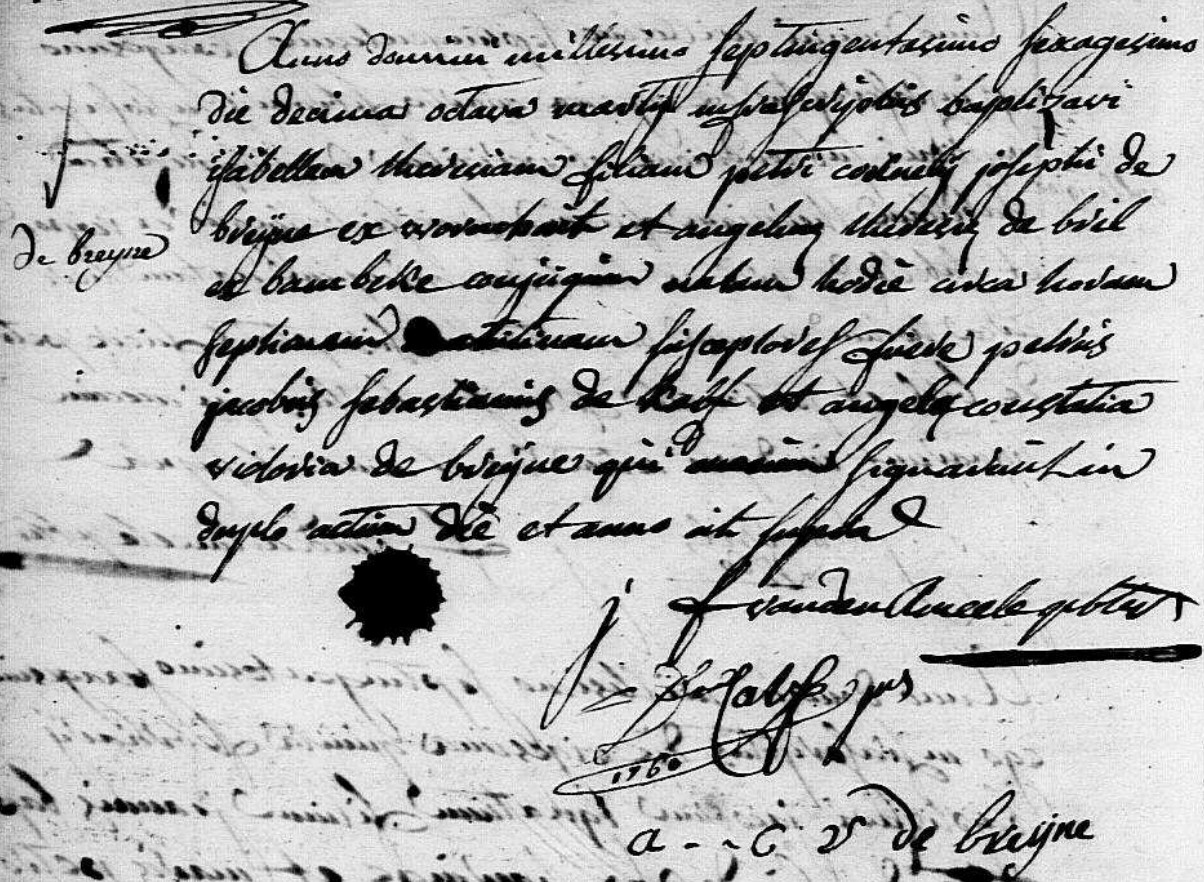 Anno domini millesimo septingentesimo sexagesimo
die decima octava martij infrascriptus baptizavi
isabellam theresiam filiam petri cornelij josephi de
de breyne
breyne ex wormhout et angelinæ theresiæ de bril
ex bambeke conjugum natam hodiè circa horam
septimam matutinam susceptores fuere petrus
jacobus sebastianus de Calf et angela constatia
victoria de breyne qui mecum signarunt in
duplo actum die et anno ut supra
j f vanden Ameele pbter
Calf
1760
a - - C v de breyne